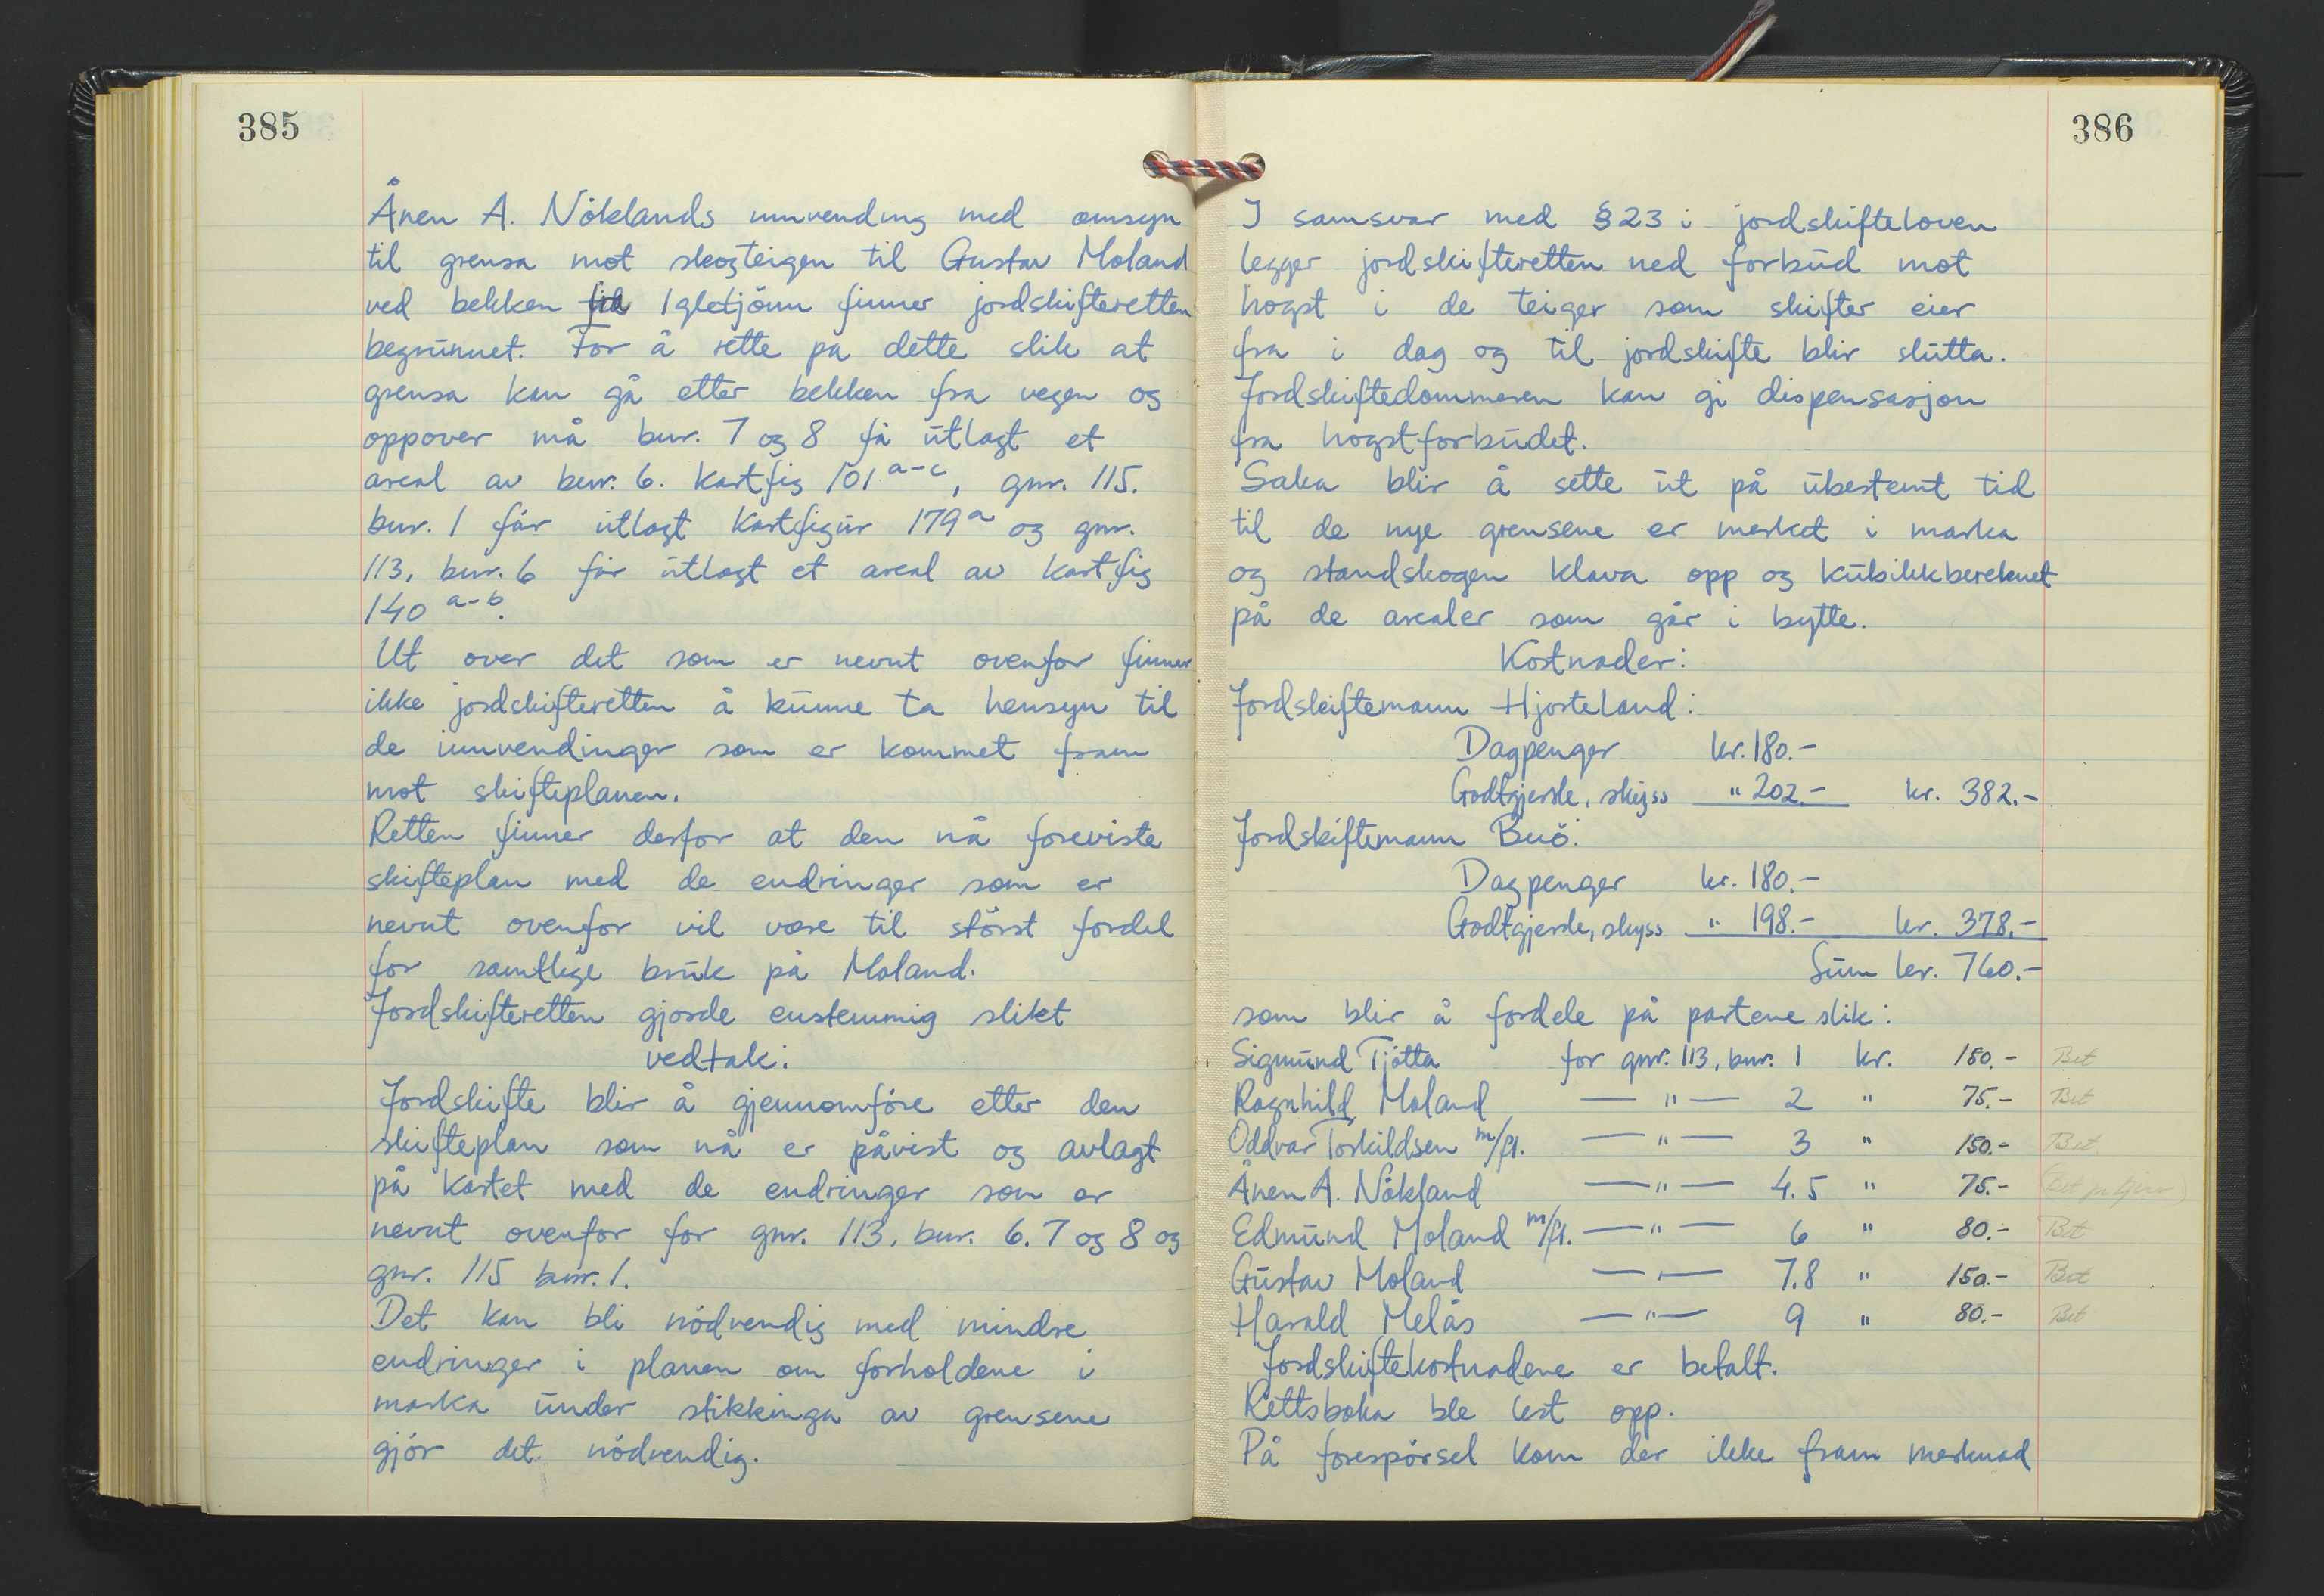 385
Ånen A. Nöklands innvending med omsyn
til grensa mot skogteigen til Gustav Moland
ved bekken til Igletjönn finner jordskifteretten
begrunnet. For å rette på dette slik at
grensa kan gå etter bekken fra vegen og
oppover må bnr. 7 og 8 få utlagt et
areal av bnr. 6. Kartfig 101 a-c, gnr. 115.
bnr. 1 får utlagt Kartfigur 179 a og gnr.
113, bnr. 6 får utlagt et areal av kartfig
140 a-b.
Ut over det som er nevnt ovenfor finner
ikke jordskifteretten å kunne ta hensyn til
de innvendinger som er kommet fram
mot skifteplanen.
Retten finner derfor at den nå foreviste
skifteplan med de endringer som er
nevnt ovenfor vil være til störst fordel
for samtlige bruk på Moland.
Jordskifteretten gjorde enstemmig slikt
vedtak:
Jordskifte blir å gjennomföre etter den
skifteplan som nå er påvist og avlagt
på kartet med de endringer som er
nevnt ovenfor for gnr. 113, bnr. 6. 7 og 8 og
gnr. 115 bnr. 1.
Det kan bli nödvendig med mindre
endringer i planen om forholdene i
marka under stikkinga av grensene
gjör det nödvendig.
386
I samsvar med §23 i jordskifteloven
legger jordskifteretten ned forbud mot
hogst i de teiger som skifter eier
fra i dag og til jordskifte blir slutta.
Jordskiftedommeren kan gi dispensasjon
fra hogstforbudet.
Saka blir å sette ut på ubestemt tid
til de nye grensene er merket i marka
og standskogen klava opp og kubikkbereknet
på de arealer som går i bytte.
Kostnader:
Jordskiftemann Hjorteland:
Dagpenger kr. 180.-
Godtgjersle, skyss " 202.- kr. 382.-
Jordskiftemann Buö:
Dagpenger kr. 180.-
Godtgjersle, skyss " 198.- kr. 378.-
Sum kr. 760.-
som blir å fordele på partene slik:
Sigmund Tjötta for gnr. 113, bnr. 1 kr. 150.- Bet
Ragnhild Moland — " — 2 " 75.- Bet
Oddvar Torkildsen m/fl. — " — 3 " 150.- Bet
Ånen A. Nökland — " — 4.5 " 75.- (Bet
Edmund Moland m/fl. — " — 6 " 80.- Bet
Gustav Moland — " — 7.8 " 150.- Bet
Harald Melås — " — 9 " 80.- Bet
Jordskiftekostnadene er betalt.
Rettsboka ble lest opp.
På forespörsel kom der ikke fram merknad